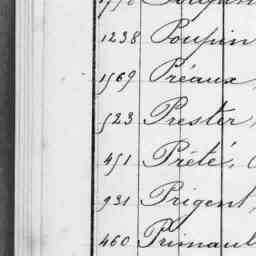 1238 Poupin
1569 Préaux,
523 Prester,
451 Prété,
931 Prigent,
460 Primault